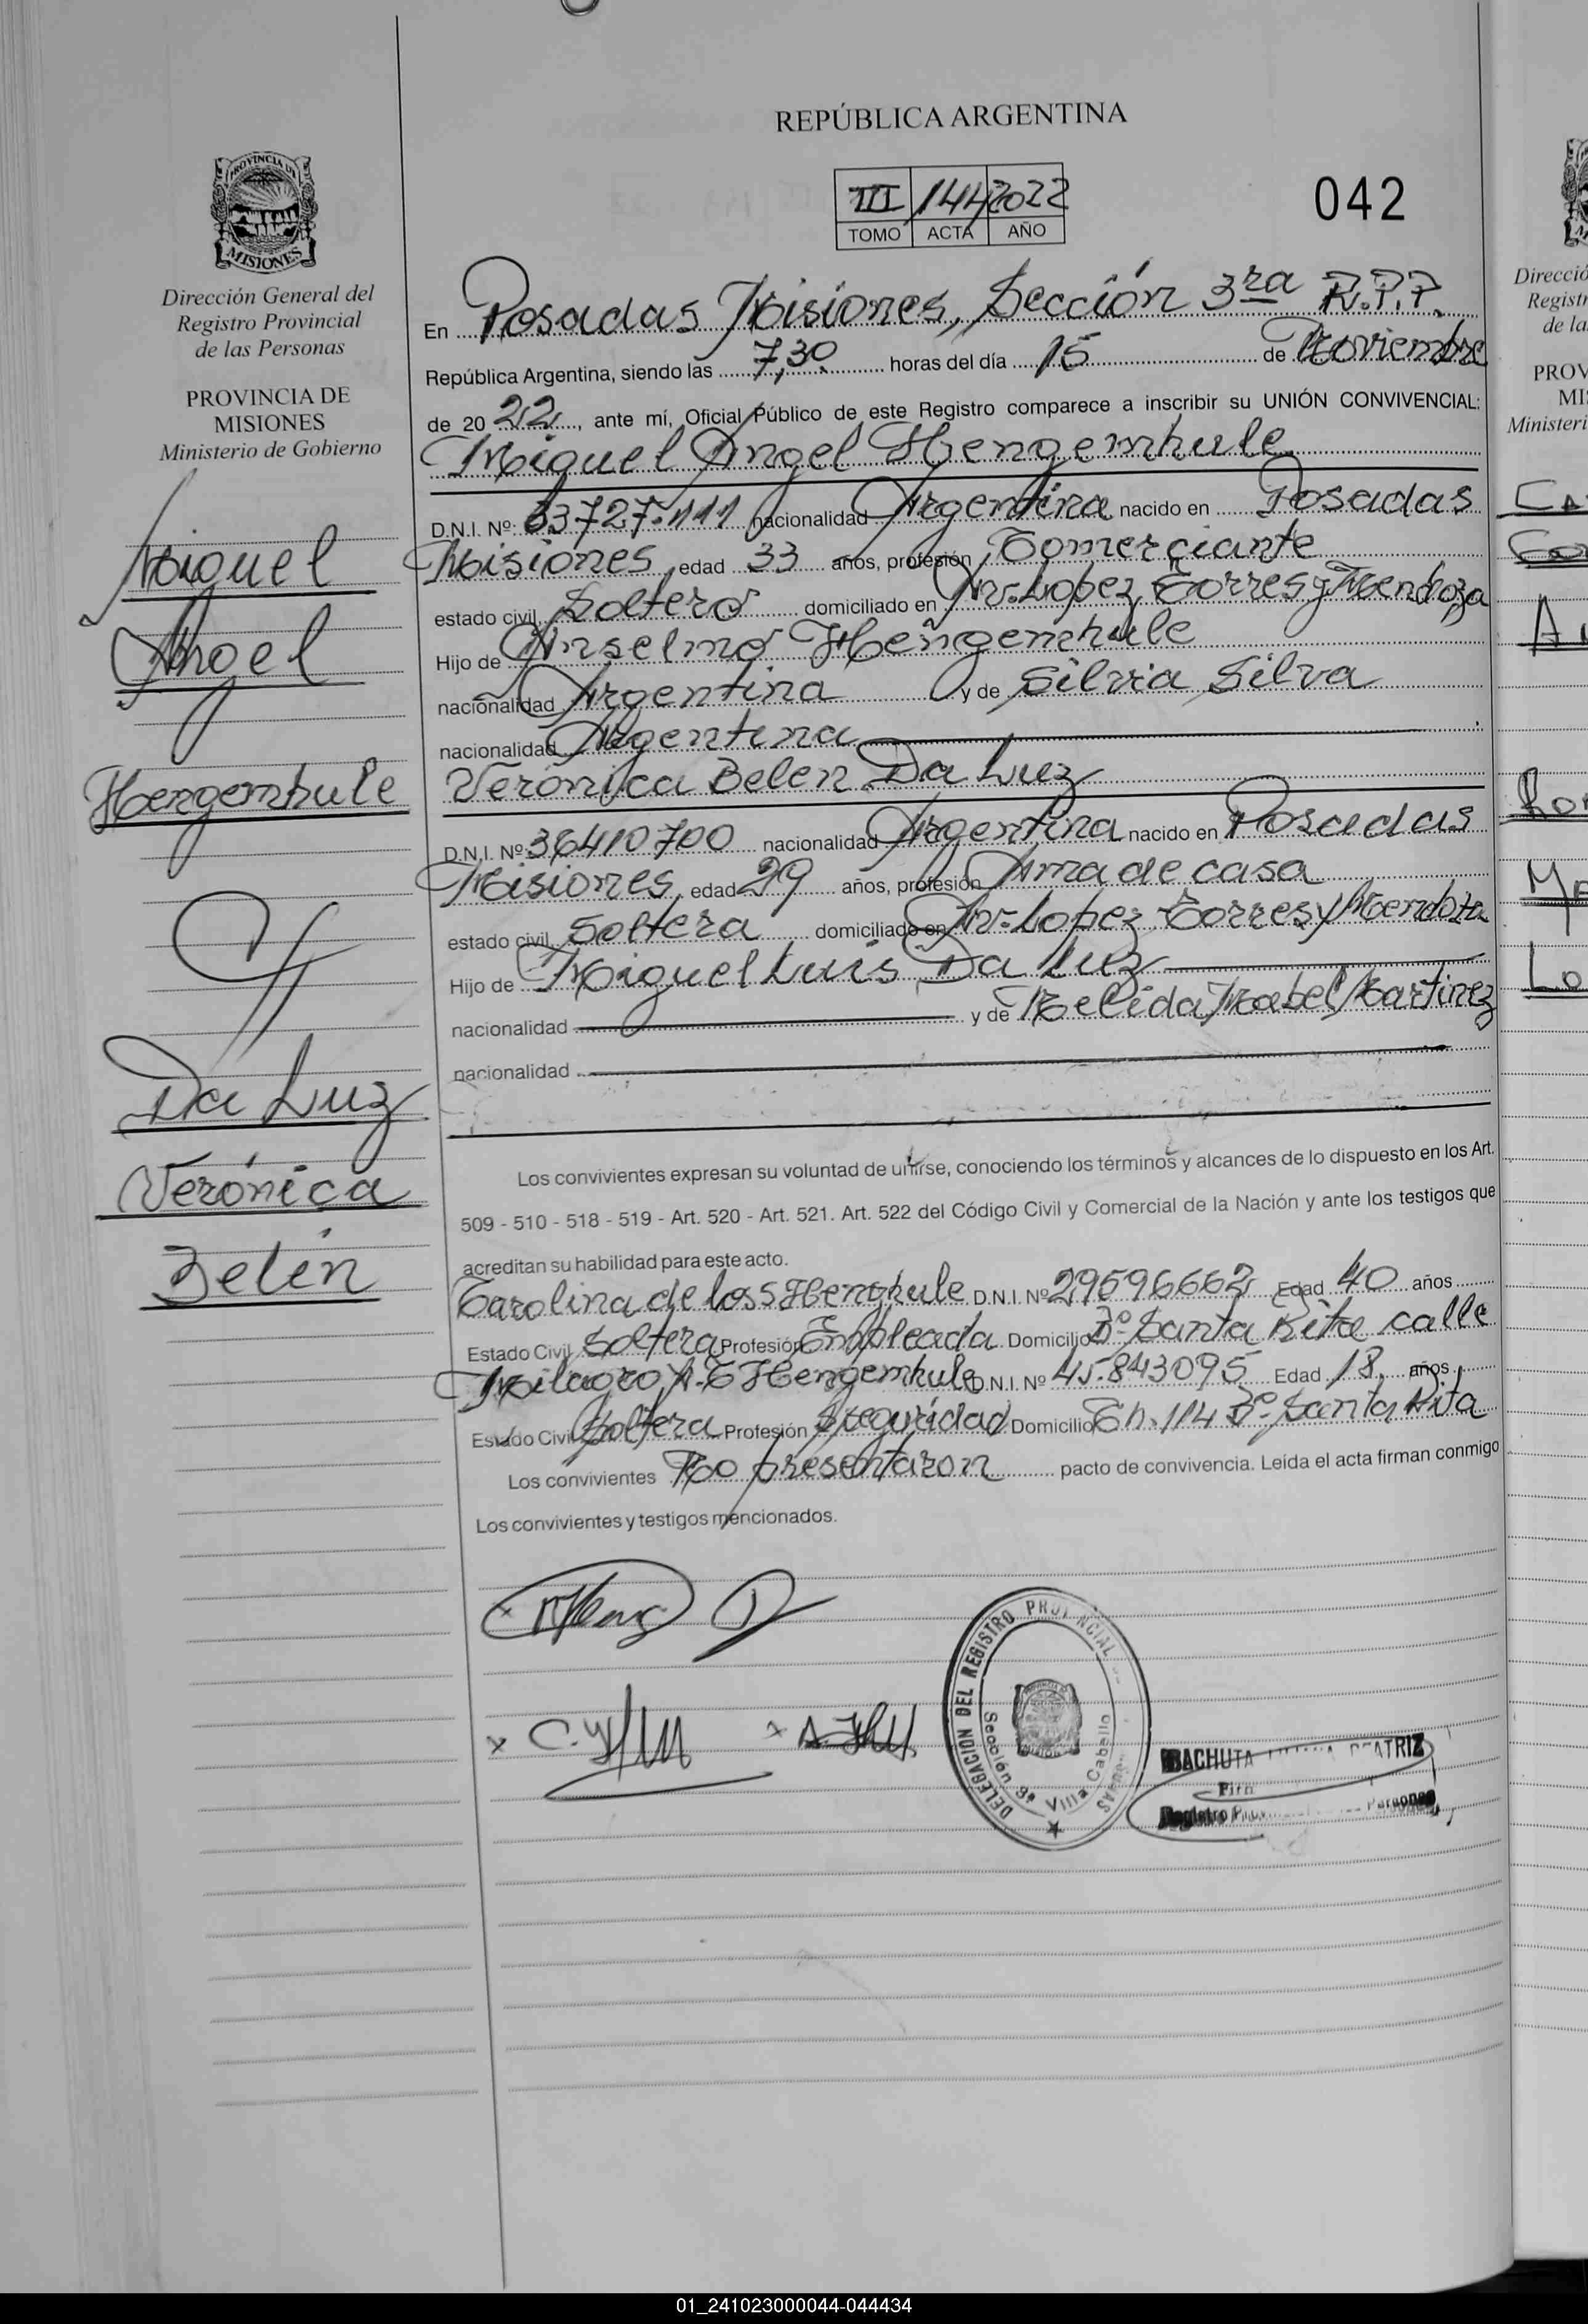 REPÚBLICA ARGENTINA
III 144 2022
TOMO ACTA AÑO
042
PROVINCIA DE
MISIONES
Dirección General del
Registro Provincial
de las Personas
PROVINCIA DE
MISIONES
Ministerio de Gobierno
Miguel
Angel
Hengemhule
y
Da Luz
Verónica
Belén
En Posadas Misiones, Sección 3ra R.P.P.
República Argentina, siendo las 7,30 horas del día 15 de Noviembre
de 20 22, ante mí, Oficial Público de este Registro comparece a inscribir su UNIÓN CONVIVENCIAL:
Miguel Angel Hengemhule
D.N.I. Nº: 33727.111 nacionalidad Argentina nacido en Posadas
Misiones, edad 33 años, profesión Comerciante
estado civil Soltero domiciliado en Av. Lopez Torres y Mendoza
Hijo de Anselmo Hengemhule
nacionalidad Argentina y de Silvia Silva
nacionalidad Argentina
Verónica Belen Da Luz
D.N.I. Nº 36410700 nacionalidad Argentina nacido en Posadas
Misiones, edad 29 años, profesión Ama de casa
estado civil Soltera domiciliado en Av. Lopez Torres y Mendoza
Hijo de Miguel Luis Da Luz
nacionalidad y de Nelida Isabel Martinez
nacionalidad
Los convivientes expresan su voluntad de unirse, conociendo los términos y alcances de lo dispuesto en los Art.
509 - 510 - 518 - 519 - Art. 520 - Art. 521. Art. 522 del Código Civil y Comercial de la Nación y ante los testigos que
acreditan su habilidad para este acto.
Carolina de los S Henghule D.N.I. Nº 29596662 Edad 40 años
Estado Civil Soltera Profesión Empleada Domicilio Bº Santa Rita calle
Milagro A. C Hengemhule D.N.I. Nº 45.843095 Edad 18 años
Estado Civil Soltera Profesión Seguridad Domicilio Ch. 114 Bº Santa Rita
Los convivientes No presentaron pacto de convivencia. Leída el acta firman conmigo
Los convivientes y testigos mencionados.
DELEGACION DEL REGISTRO PROVINCIAL
Villa Cabello
BACHUTA BEATRIZ
Registro Personas
Direcció
Registr
de la
PROV
MI
Ministeri
01_241023000044-044434